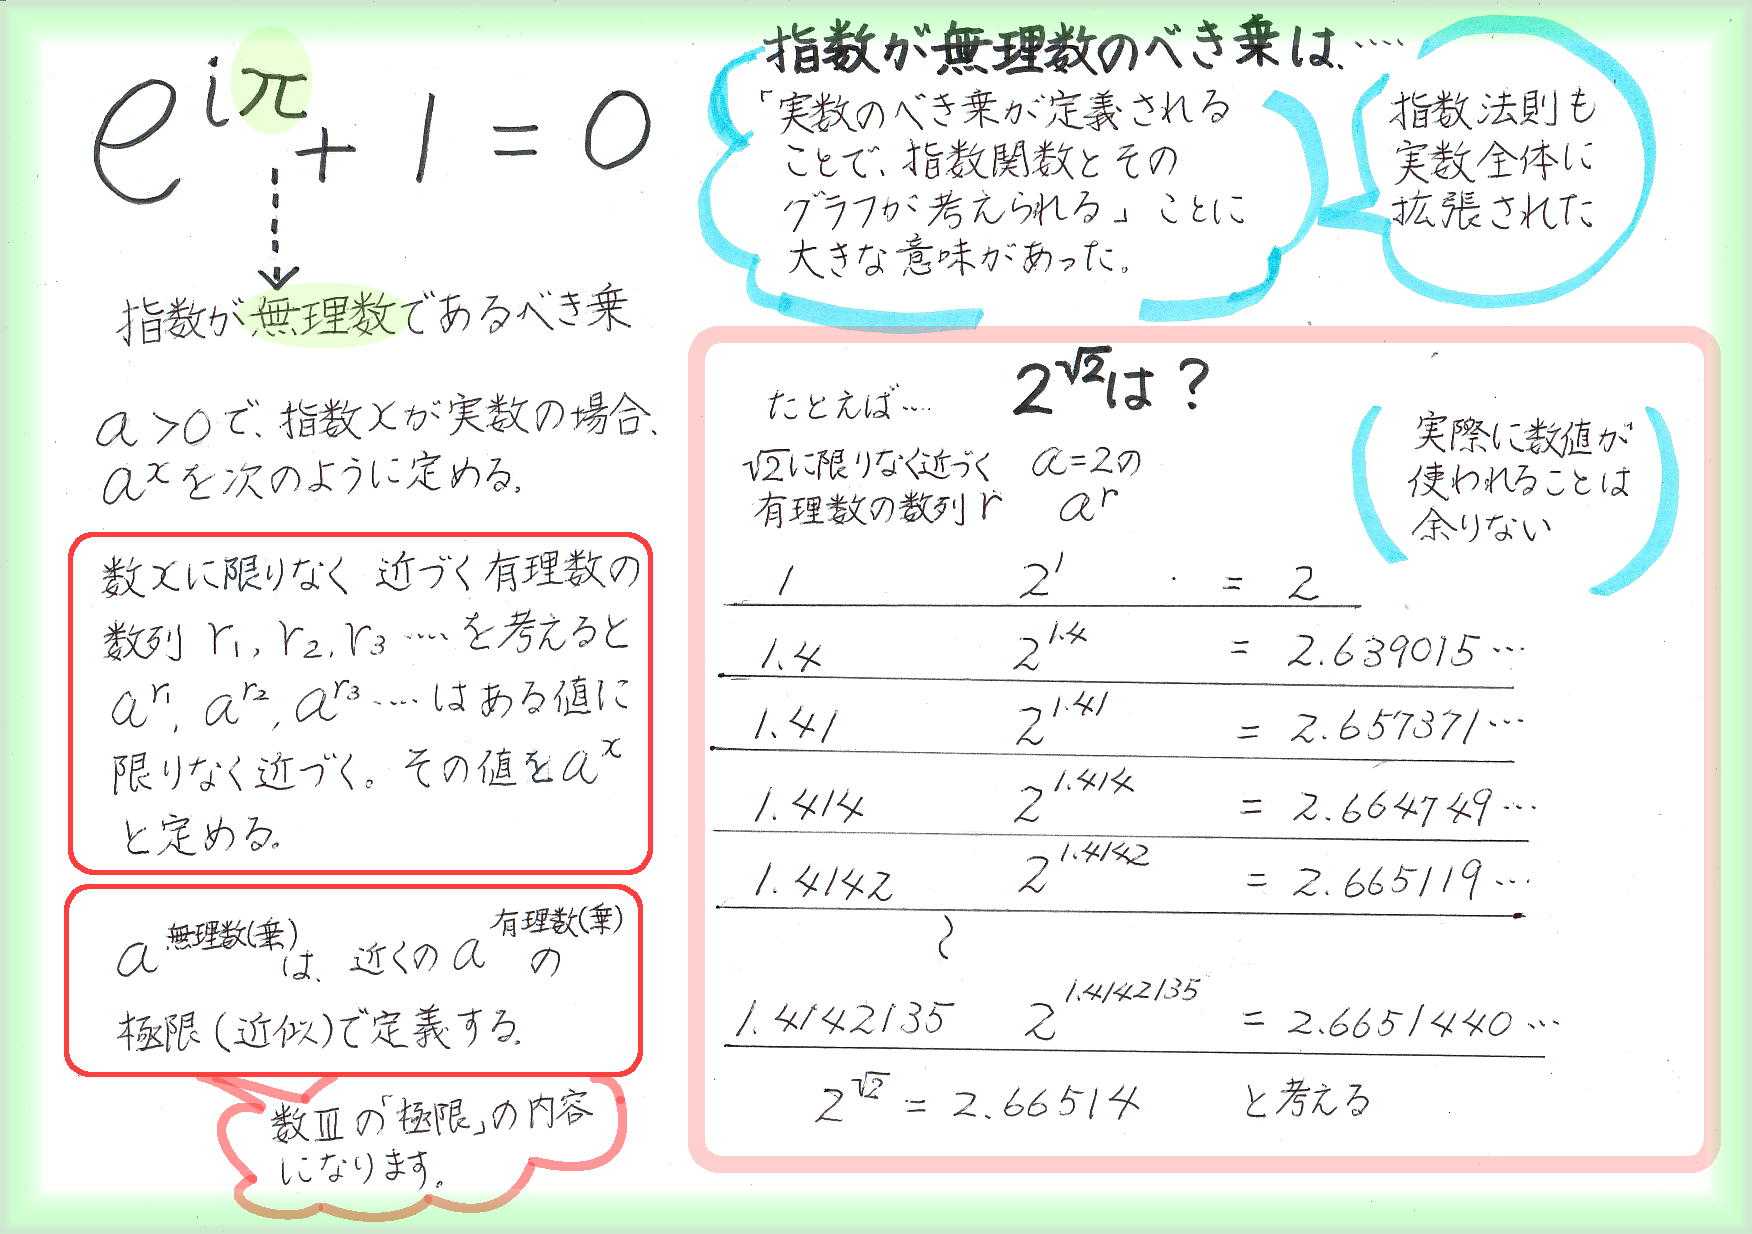 e^{iπ} + 1 = 0
指数が無理数であるべき乗
a>0で、指数xが実数の場合、
a^xを次のように定める。
数xに限りなく 近づく有理数の
数列 r₁, r₂, r₃ ‥‥ を考えると
a^{r₁}, a^{r₂}, a^{r₃} ‥‥ はある値に
限りなく近づく。その値をa^x
と定める。
a^{無理数(乗)}は、近くのa^{有理数(乗)}の
極限(近似)で定義する。
数Ⅲの「極限」の内容
になります。
指数が無理数のべき乗は、‥‥
「実数のべき乗が定義される
ことで、指数関数とその
グラフが考えられる」ことに
大きな意味があった。
指数法則も
実数全体に
拡張された
たとえば‥‥ 2^{√2}は?
√2に限りなく近づく a=2の
有理数の数列 r a^r
実際に数値が
使われることは
余りない
1 2^1 = 2
1.4 2^{1.4} = 2.639015…
1.41 2^{1.41} = 2.657371…
1.414 2^{1.414} = 2.664749…
1.4142 2^{1.4142} = 2.665119…
~
1.4142135 2^{1.4142135} = 2.6651440…
2^{√2} = 2.66514 と考える